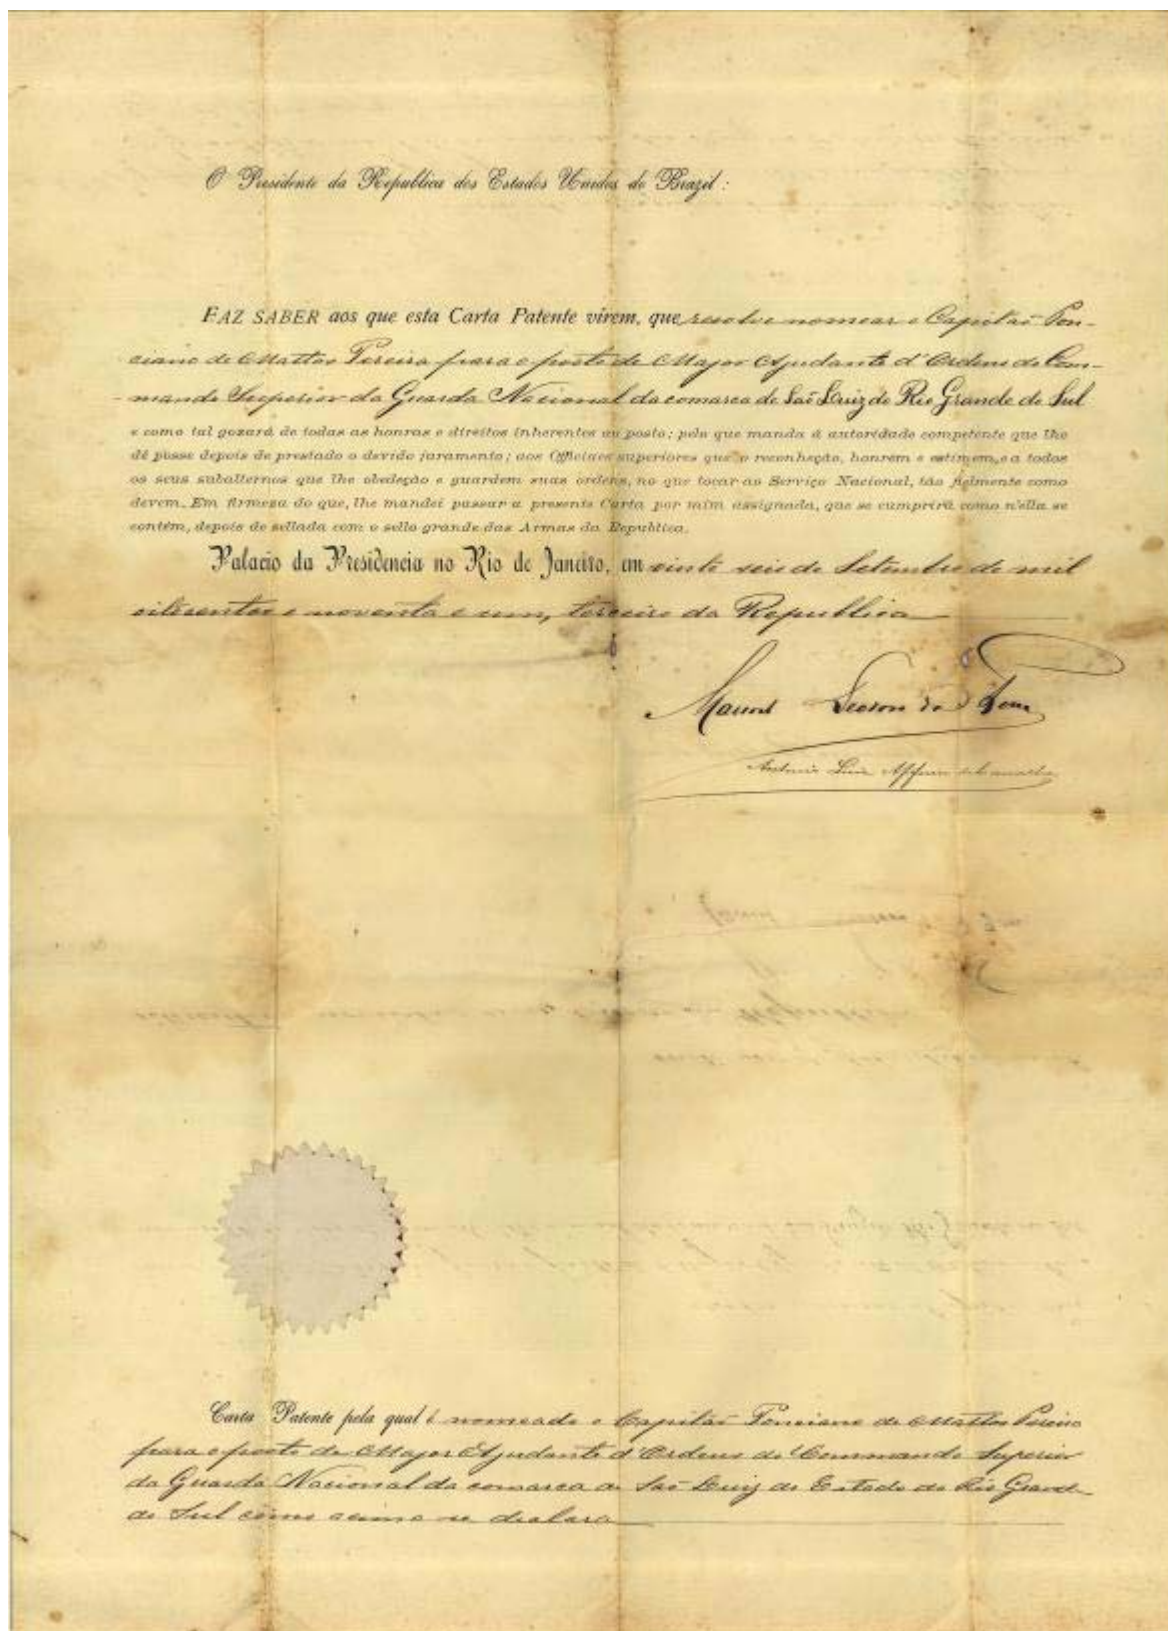 O Presidente da Republica dos Estados Unidos do Brazil:
FAZ SABER aos que esta Carta Patente virem, que resolve nomear o Capitaõ Pon-
ciano de Mattos Pereira para o posto de Major Ajudante d'Ordens do Com-
- mando Superior da Guarda Nacional da comarca de Saõ Luiz do Rio Grande do Sul
e como tal gozará de todas as honras e direitos inherentes ao posto; pelo que manda á autoridade competente que lhe
dê posse depois de prestado o devido juramento; aos Officiaes superiores que o reconheção, honrem e estimem, e a todos
os seus subalternos que lhe obedeção e guardem suas ordens, no que tocar ao Serviço Nacional, tão fielmente como
devem. Em firmeza do que, lhe mandei passar a presente Carta por mim assignada, que se cumprirá como n'ella se
contém, depois de sellada com o sello grande das Armas da Republica.
Palacio da Presidencia no Rio de Janeiro, em vinte seis de Setembro de mil
oitocentos e noventa e um, terceiro da Republica
Manoel Deodoro da Fonseca
Antonio Luiz Affonso de Carvalho
Carta Patente pela qual é nomeado o Capitaõ Ponciano de Mattos Pereira
para o posto de Major Ajudante d'Ordens do Commando Superior
da Guarda Nacional da comarca de Saõ Luiz do Estado do Rio Grande
do Sul como acima se declara